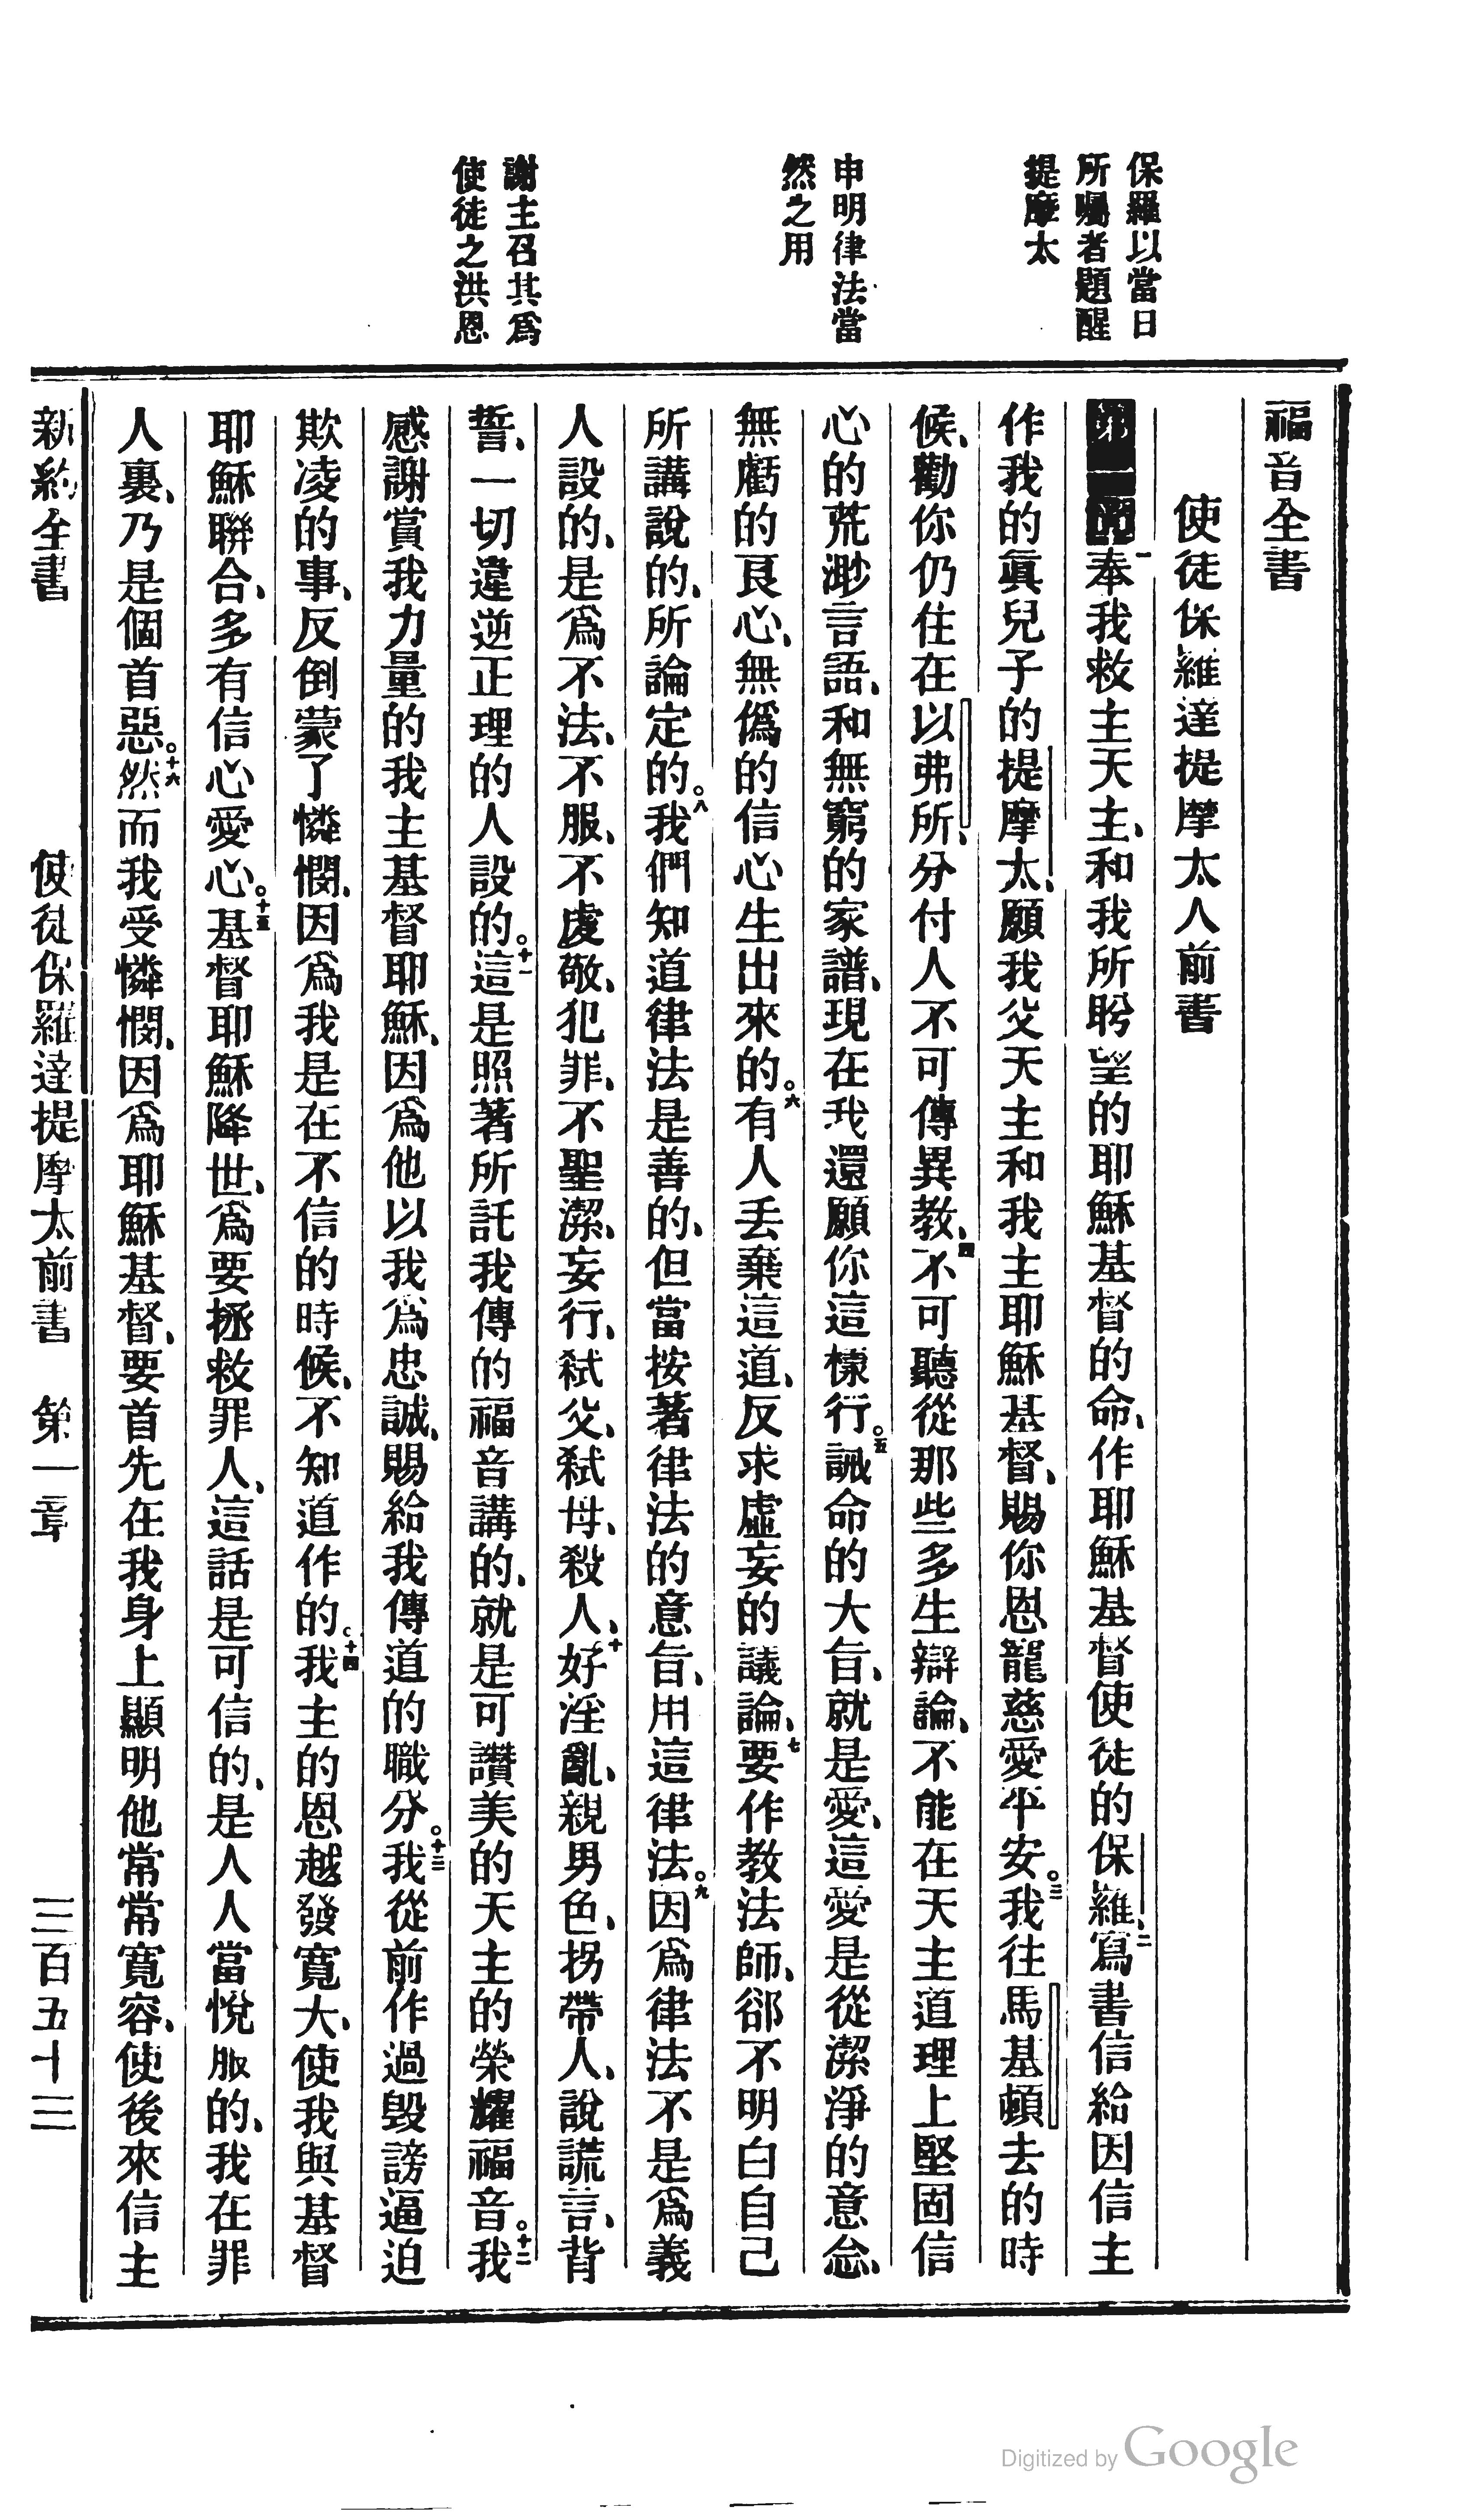 保羅以當日
所囑者題醒
提摩太
申明律法當
然之用
謝主召其爲
使徒之洪恩
福音全書
使徒保羅達提摩太人前書
一奉我救主天主、和我所盼望的耶穌基督的命、作耶穌基督使徒的保羅、二寫書信給因信主
作我的眞兒子的提摩太、願我父天主和我主耶穌基督、賜你恩寵慈愛平安。三我往馬基頓去的時
候、勸你仍住在以弗所、分付人不可傳異教、四不可聽從那些多生辯論、不能在天主道理上堅固信
心的荒渺言語、和無窮的家譜、現在我還願你這樣行。五誡命的大旨、就是愛、這愛是從潔淨的意念、
無虧的良心、無僞的信心生出來的。六有人丢棄這道、反求虛妄的議論、七要作教法師、郤不明白自己
所講說的、所論定的。八我們知道律法是善的、但當按著律法的意旨、用這律法。九因爲律法不是爲義
人設的、是爲不法、不服、不虔敬、犯罪、不聖潔、妄行、弒父、弒母、殺人、十好淫亂、親男色、拐帶人、說謊言、背
誓、一切違逆正理的人設的。十一這是照著所託我傳的福音講的、就是可讚美的天主的榮耀福音。十二我
感謝賞我力量的我主基督耶穌、因爲他以我爲忠誠、賜給我傳道的職分。十三我從前作過毀謗逼迫
欺凌的事、反倒蒙了憐憫、因爲我是在不信的時候、不知道作的。十四我主的恩越發寬大、使我與基督
耶穌聯合、多有信心愛心。十五基督耶穌降世、爲要拯救罪人、這話是可信的、是人人當悅服的、我在罪
人裏、乃是個首惡。十六然而我受憐憫、因爲耶穌基督、要首先在我身上顯明他常常寬容、使後來信主
新約全書　使徒保羅達提摩太前書　第一章　三百五十三
Digitized by Google